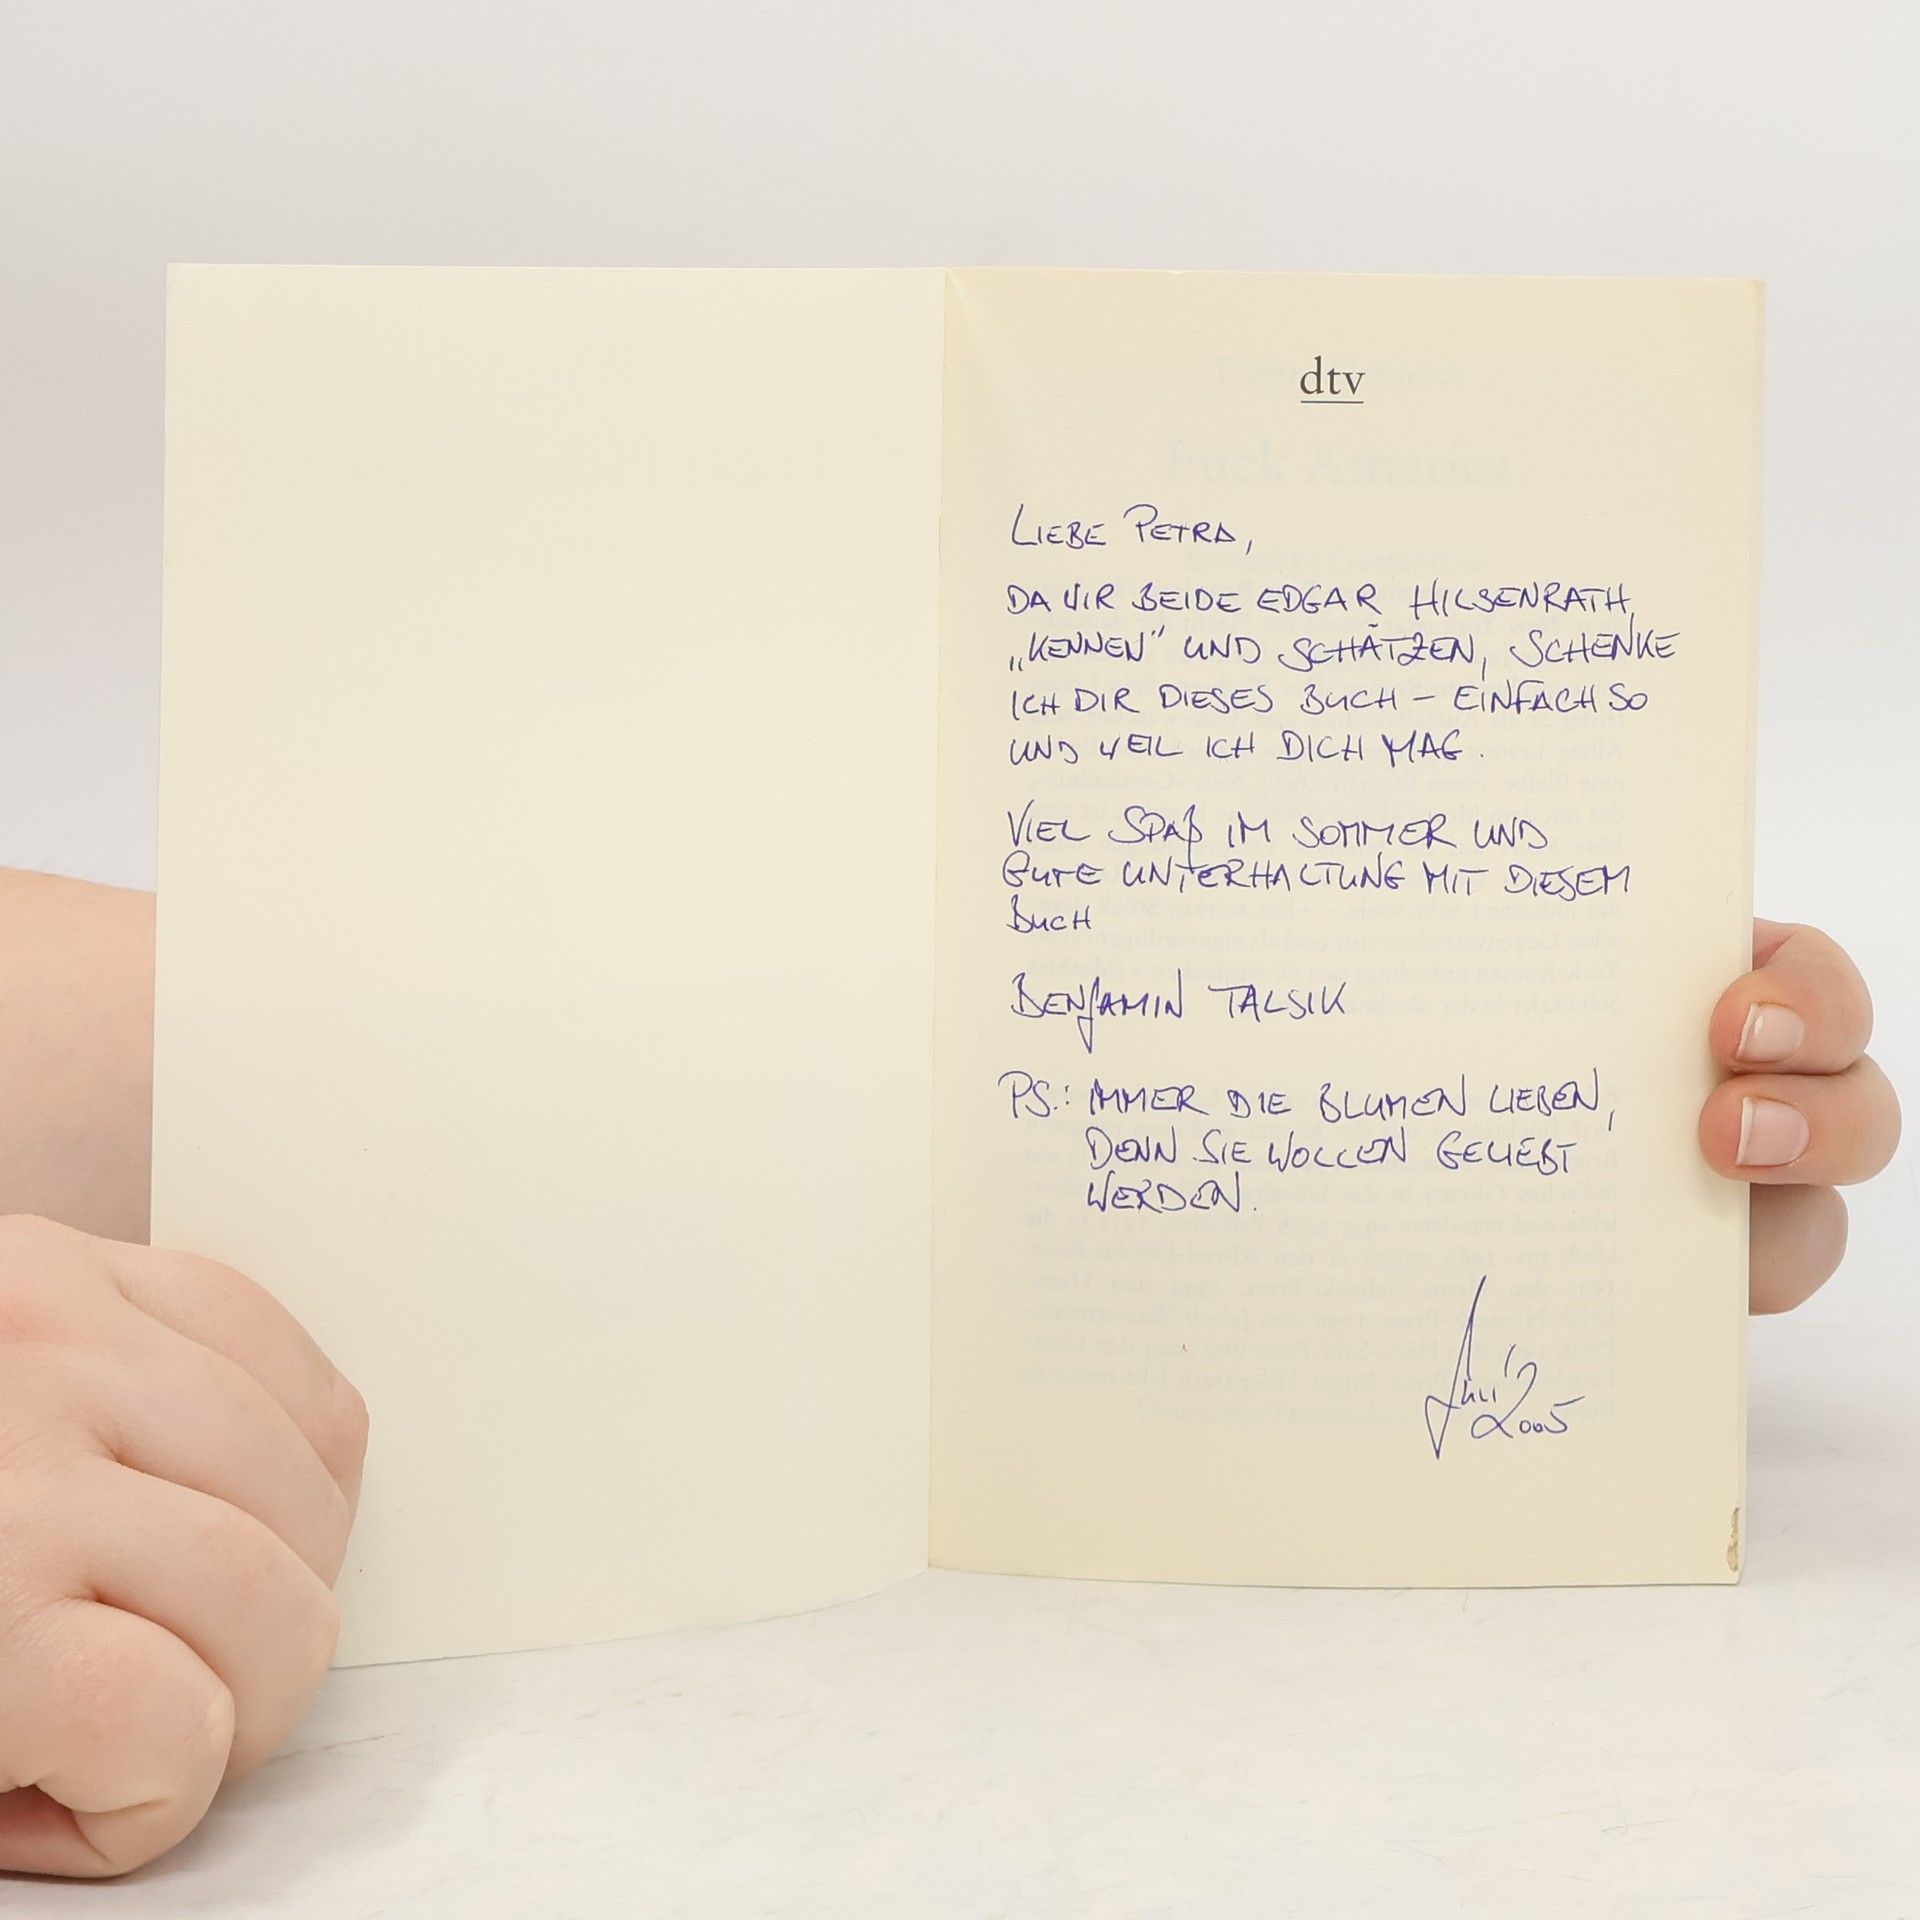 dtv
Fuck America
LIEBE PETRA,
DA WIR BEIDE EDGAR HILSENRATH
„KENNEN" UND SCHÄTZEN, SCHENKE
ICH DIR DIESES BUCH – EINFACH SO
UND WEIL ICH DICH MAG.
VIEL SPAß IM SOMMER UND
GUTE UNTERHALTUNG MIT DIESEM
BUCH
BENJAMIN TALSIK
PS.: IMMER DIE BLUMEN LIEBEN,
DENN SIE WOLLEN GELIEBT
WERDEN.
Juli
2005